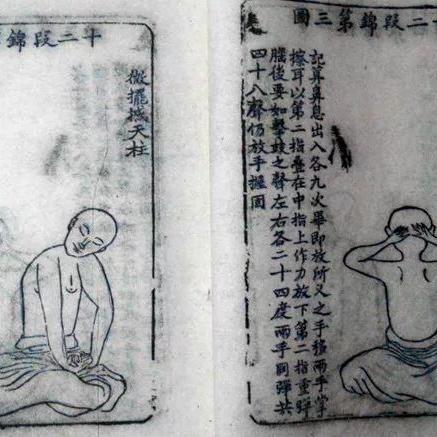 十二段錦第三圖
記算鼻息出入各九次畢即放所叉之手移兩手掌
擦耳以第二指疊在中指上作力放下第二指重彈
腦後要如擊鼓之聲左右各二十四度兩手同彈共
四十八聲仍放手握固
十二段錦
微擺撼天柱